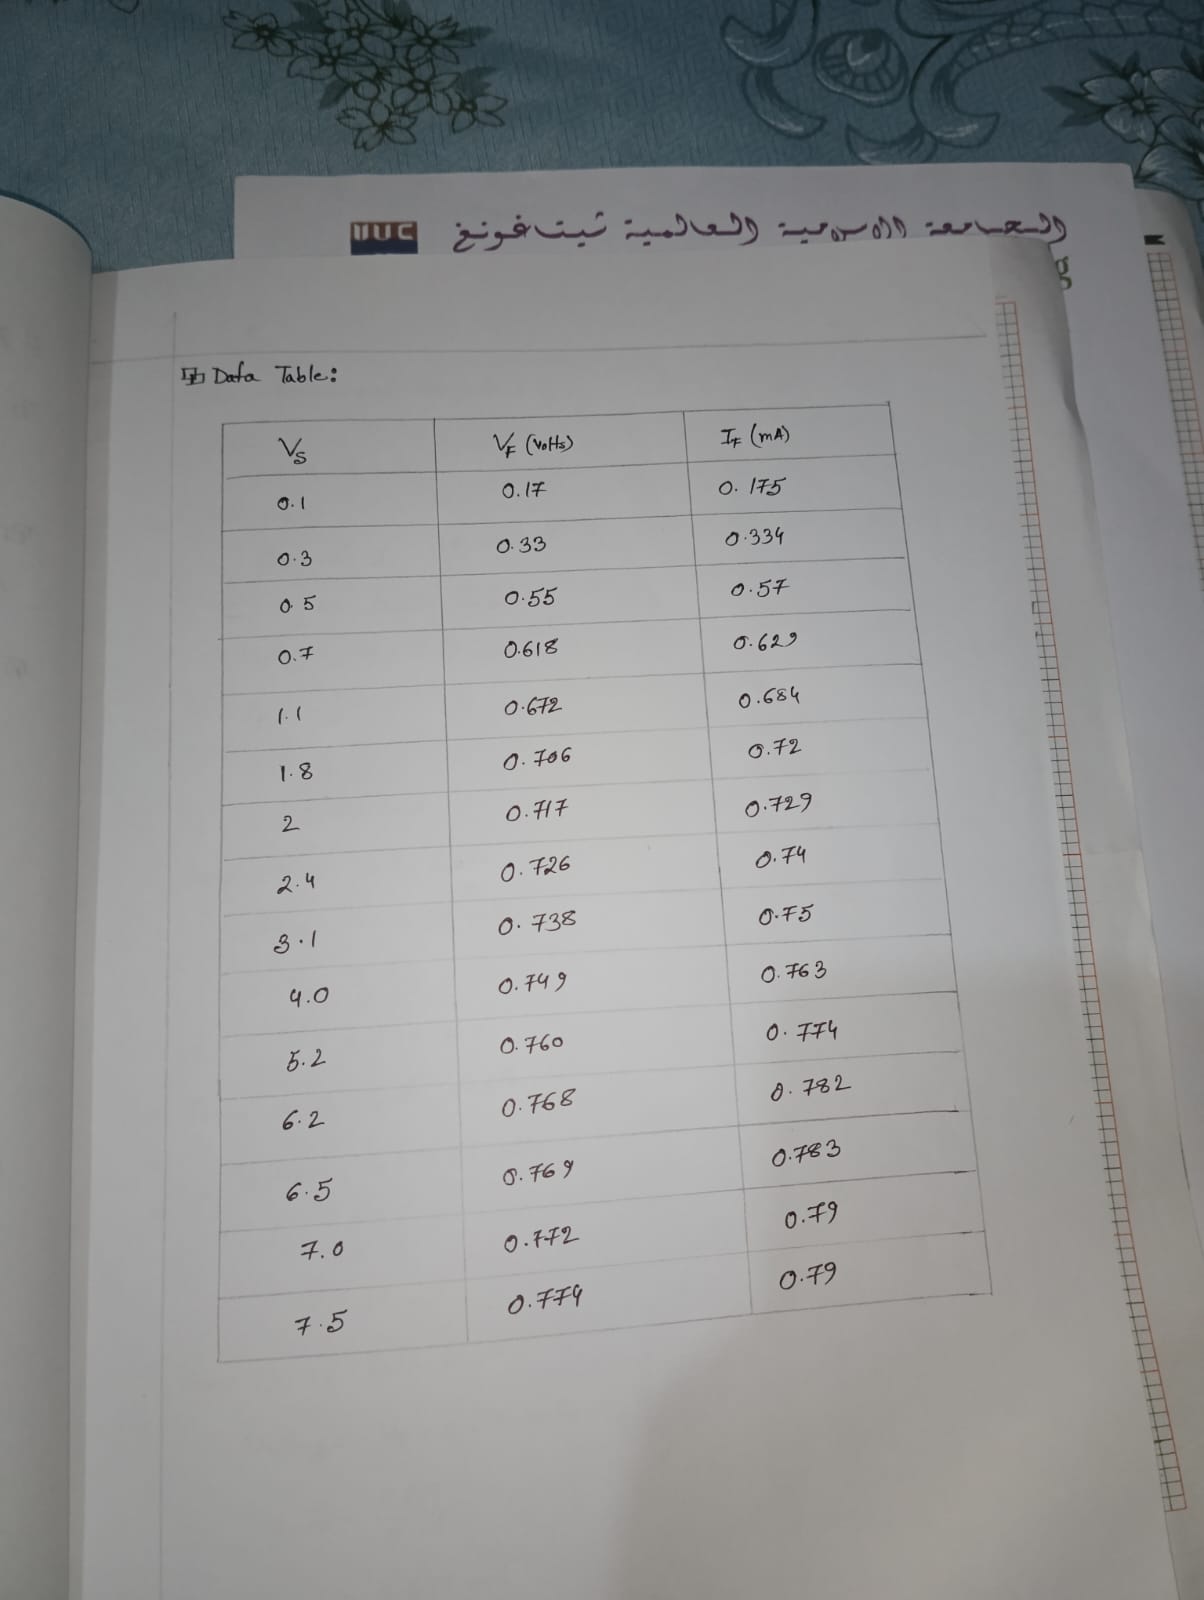 IIUC الجامعة الإسلامية العالمية شيتاغونغ
g
Data Table:
V_S V_F (volts) I_F (mA)
0.1 0.17 0.175
0.3 0.33 0.334
0.5 0.55 0.57
0.7 0.618 0.629
1.1 0.672 0.684
1.8 0.706 0.72
2 0.717 0.729
2.4 0.726 0.74
3.1 0.738 0.75
4.0 0.749 0.763
5.2 0.760 0.774
6.2 0.768 0.782
6.5 0.769 0.783
7.0 0.772 0.79
7.5 0.774 0.79